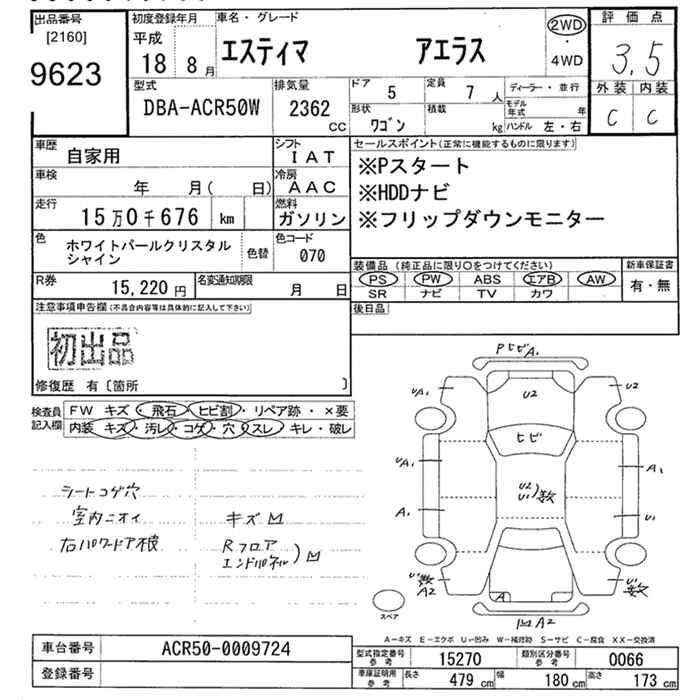 出品番号
[2160]
9623
初度登録年月
平成
18 8月
車名・グレード
エスティマ アエラス
2WD
・
4WD
評価点
3.5
外装 内装
C C
型式
DBA-ACR50W
排気量
2362
CC
ドア 5
定員 7人
ディーラー・並行
形状 ワゴン
積載 kg
モデル年式 年
ハンドル 左・右
車歴 自家用
シフト IAT
車検 年 月( 日)
冷房 AAC
走行 15万0千676 km
燃料 ガソリン
色 ホワイトパールクリスタル
シャイン
色替
色コード 070
R券 15,220円
名変通知期限 月 日
セールスポイント(正常に機能するものに限ります)
※Pスタート
※HDDナビ
※フリップダウンモニター
装備品(純正品に限り〇をつけてください)
PS PW ABS エアB AW
SR ナビ TV カワ
新車保証書
有・無
後日品
注意事項申告欄(不具合内容等は具体的に記入して下さい)
初出品
修復歴 有〔箇所 〕
検査員
記入欄
FW キズ・飛石・ヒビ割・リペア跡・×要
内装 キズ・汚レ・コゲ・穴・スレ・キレ・破レ
シートコゲ穴
室内ニオイ
キズ
Rフロア
エンドパネル
PヒビA1
UA1
U2
U2
ヒビ
UA1
A1
U2
U1
数
A1
U1
U数
A2
A
U1数
A2
スペア
A-キズ E-エクボ U-凹み W-補修跡 S-サビ C-腐食 XX-交換済
車台番号 ACR50-0009724
登録番号
型式指定番号
参考
15270
類別区分番号
参考
0066
車庫証明用
参考
長さ 479 cm
幅 180 cm
高さ 173 cm